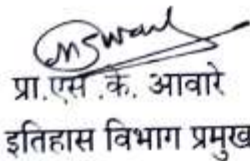 प्रा.एस .के. आवारे
इतिहास विभाग प्रमुख